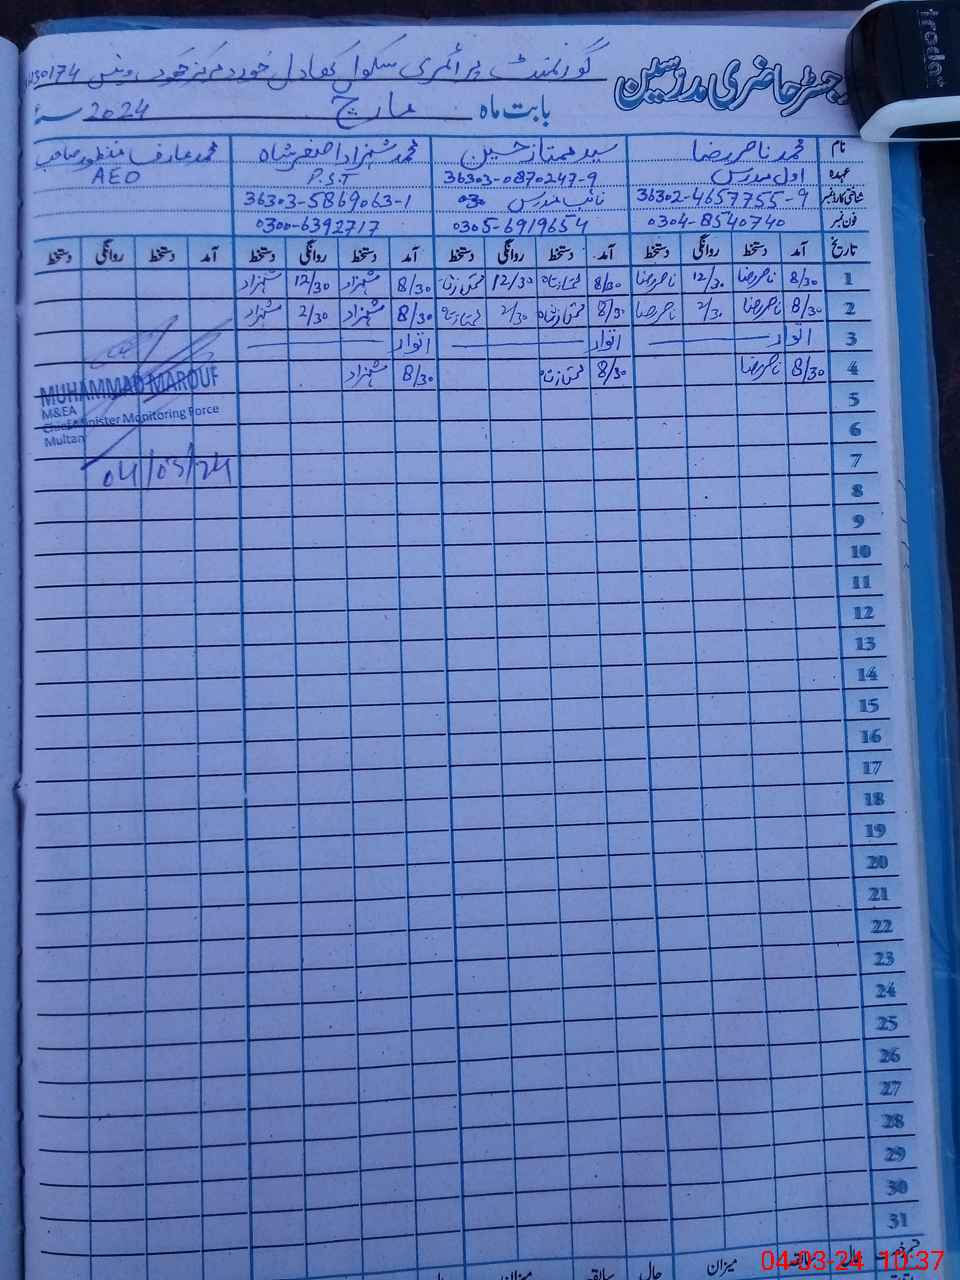 رجسٹر حاضری مدرسین
گورنمنٹ پرائمری سکول
بابت ماہ مارچ 2024
نام محمد ناصر رضا سید ممتاز حسین محمد شہزاد اصغر شاہ محمد عارف منظور صاحب
عہدہ اول مدرس 36303-0870247-9 P.S.T AEO
شناختی کارڈ نمبر 36302-4657755-9 نائب مدرس 36303-5869063-1
فون نمبر 0304-8540740 0305-6919654 0300-6392717
تاریخ آمد دستخط روانگی دستخط آمد دستخط روانگی دستخط آمد دستخط روانگی دستخط آمد دستخط روانگی دستخط
1 8/30 ناصر رضا 12/30 ناصر رضا 8/30 12/30 8/30 شہزاد 12/30 شہزاد
2 8/30 ناصر رضا 2/30 ناصر رضا 8/30 2/30 8/30 شہزاد 2/30 شہزاد
3 اتوار اتوار اتوار
4 8/30 ناصر رضا 8/30 8/30 شہزاد
MUHAMMAD MAROUF
M&EA
Chief Minister Monitoring Force
Multan
04/03/24
5
6
7
8
9
10
11
12
13
14
15
16
17
18
19
20
21
22
23
24
25
26
27
28
29
30
31
حال سابقہ میزان حال سابقہ میزان
04-03-24 10:37
trodat